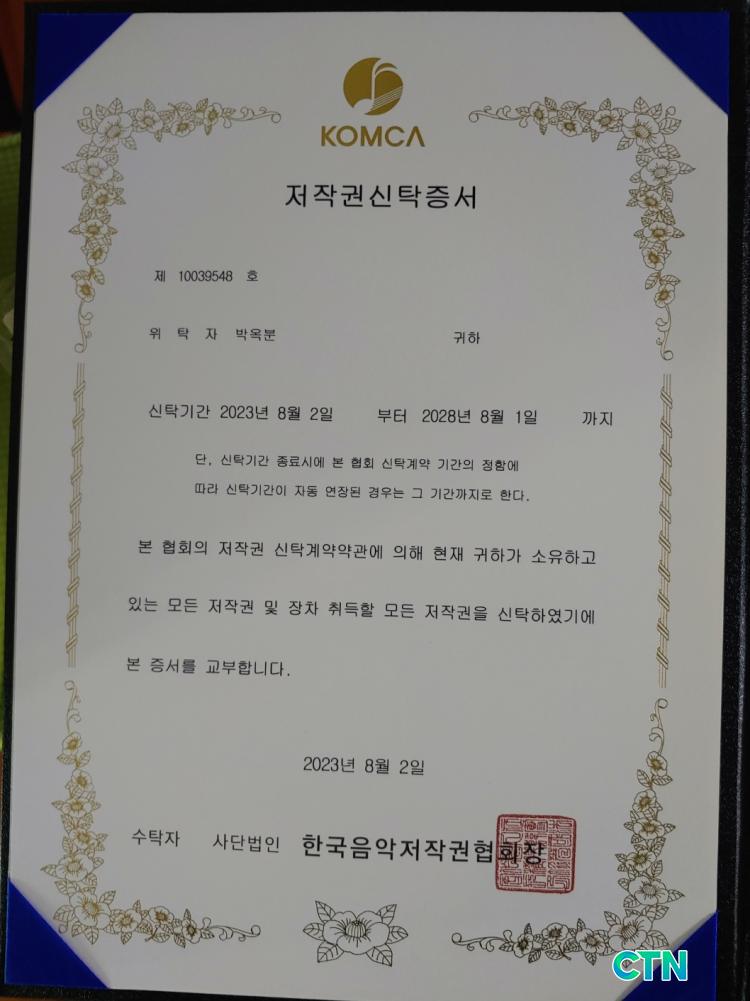 KOMCA
저작권신탁증서
제 10039548 호
위 탁 자 박옥분 귀하
신탁기간 2023년 8월 2일 부터 2028년 8월 1일 까지
단, 신탁기간 종료시에 본 협회 신탁계약 기간의 정함에
따라 신탁기간이 자동 연장된 경우는 그 기간까지로 한다.
본 협회의 저작권 신탁계약약관에 의해 현재 귀하가 소유하고
있는 모든 저작권 및 장차 취득할 모든 저작권을 신탁하였기에
본 증서를 교부합니다.
2023년 8월 2일
수탁자 사단법인 한국음악저작권협회장
CTN